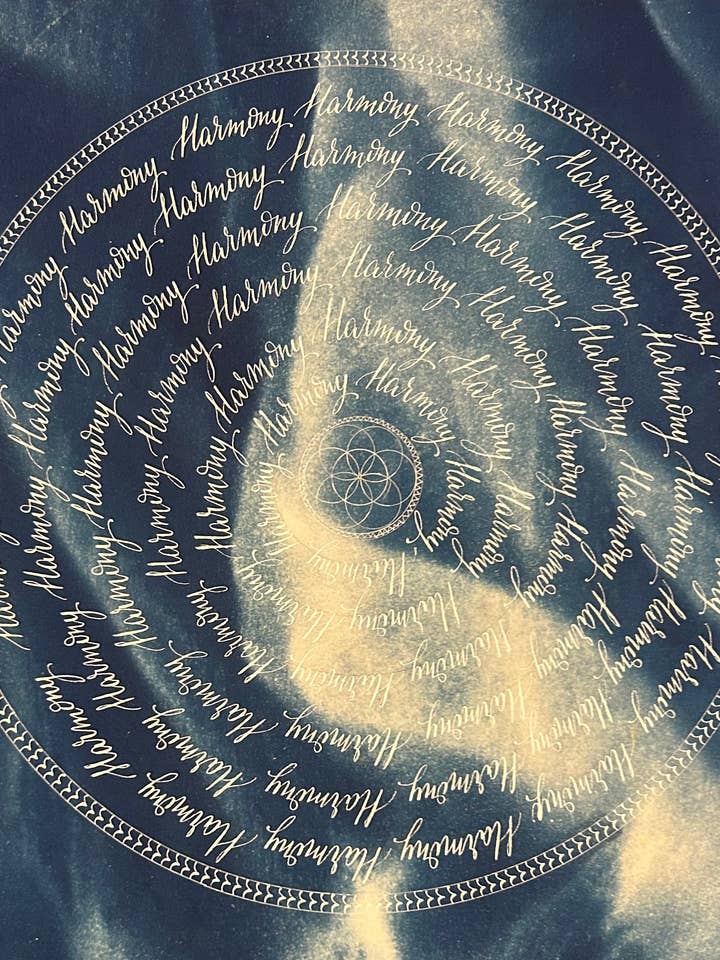 Harmony Harmony Harmony Harmony Harmony Harmony Harmony Harmony Harmony Harmony Harmony Harmony Harmony Harmony Harmony
Harmony Harmony Harmony Harmony Harmony Harmony Harmony Harmony Harmony Harmony Harmony Harmony Harmony Harmony
Harmony Harmony Harmony Harmony Harmony Harmony Harmony Harmony Harmony Harmony Harmony Harmony
Harmony Harmony Harmony Harmony Harmony Harmony Harmony Harmony Harmony Harmony
Harmony Harmony Harmony Harmony Harmony Harmony Harmony Harmony
Harmony Harmony Harmony Harmony Harmony Harmony